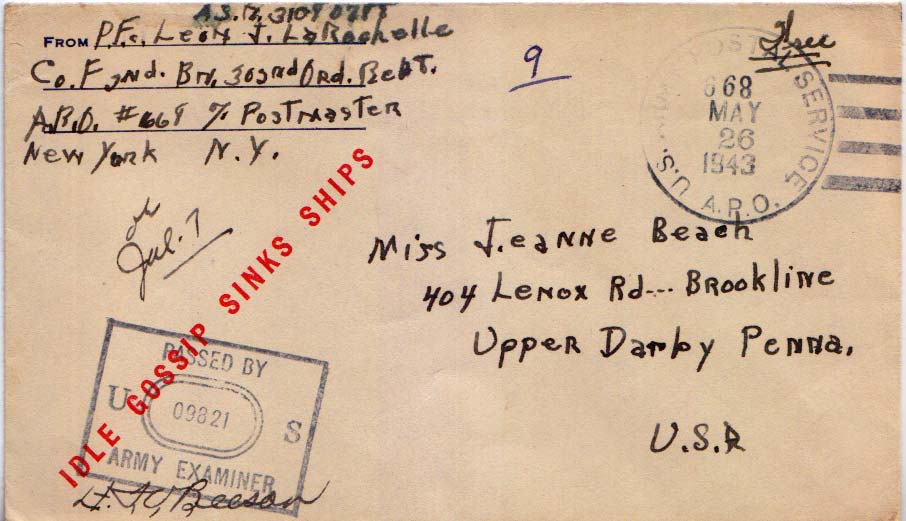 A.S.N. 31090785
FROM P.F.c. Leon J. LaRochelle
Co. F 2nd. Bn. 302nd Ord. Regt.
A.P.O. #668 % Postmaster
New York N.Y.
9
Free
U.S. POSTAL SERVICE A.P.O.
668
MAY
26
1943
Jul. 7
IDLE GOSSIP SINKS SHIPS
Miss Jeanne Beach
404 Lenox Rd--- Brookline
Upper Darby Penna.
U.S.A
PASSED BY
U 09821 S
ARMY EXAMINER
Beeson